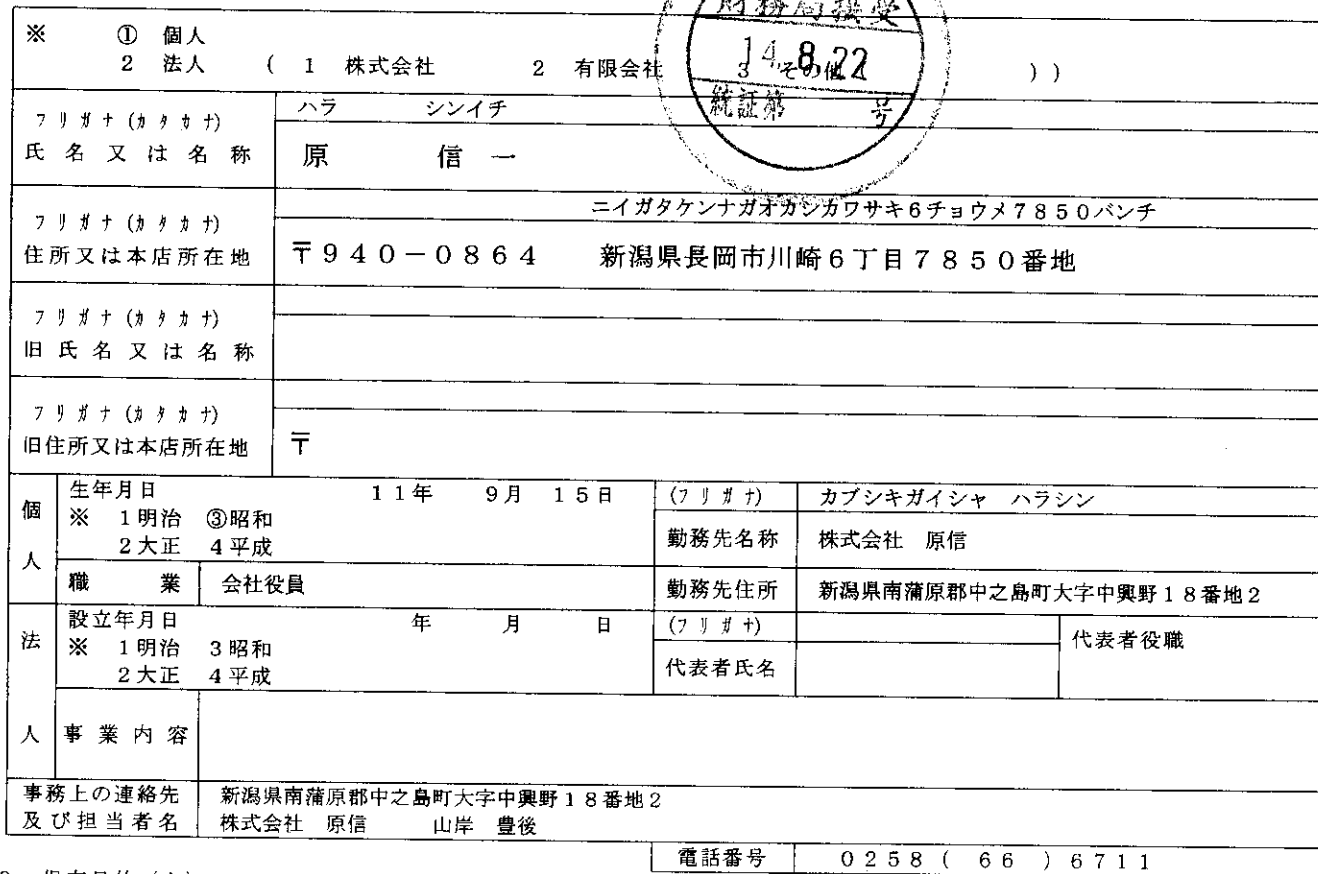 財務局接受
14.8.22
統証第 号
※ ① 個人
2 法人 ( 1 株式会社 2 有限会社 3 その他 ( ) )
フリガナ(カタカナ) ハラ シンイチ
氏名又は名称 原 信一
フリガナ(カタカナ) ニイガタケンナガオカシカワサキ6チョウメ7850バンチ
住所又は本店所在地 〒940-0864 新潟県長岡市川崎6丁目7850番地
フリガナ(カタカナ)
旧氏名又は名称
フリガナ(カタカナ)
旧住所又は本店所在地 〒
個人
生年月日 11年 9月 15日
※ 1明治 ③昭和
2大正 4平成
(フリガナ) カブシキガイシャ ハラシン
勤務先名称 株式会社 原信
職業 会社役員
勤務先住所 新潟県南蒲原郡中之島町大字中興野18番地2
法人
設立年月日 年 月 日
※ 1明治 3昭和
2大正 4平成
(フリガナ)
代表者氏名
代表者役職
事業内容
事務上の連絡先 新潟県南蒲原郡中之島町大字中興野18番地2
及び担当者名 株式会社 原信 山岸 豊後
電話番号 0258( 66 )6711